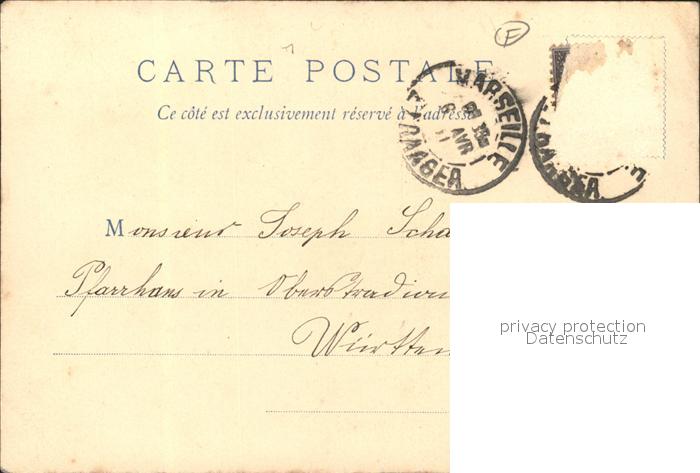 F
CARTE POSTALE
Ce côté est exclusivement réservé à l'adresse
MARSEILLE
AVR
Monsieur Joseph Scha
Pfarrhaus in Oberstradion
Württem
privacy protection
Datenschutz